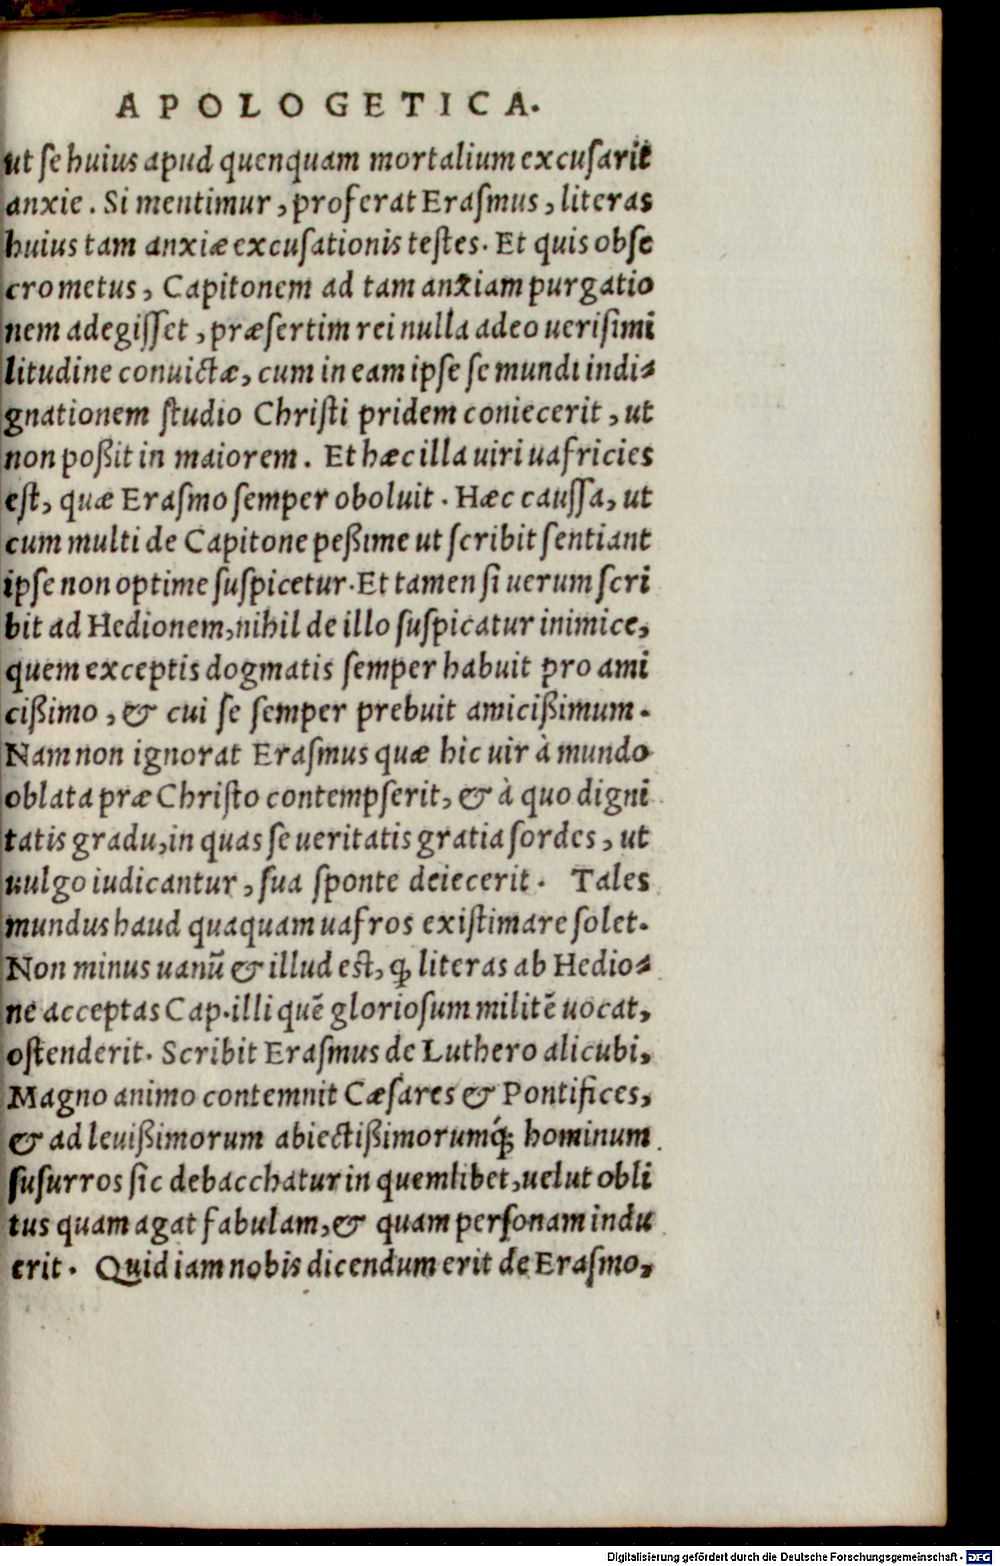 APOLOGETICA.
ut ſe huius apud quenquam mortalium excuſarit
anxie. Si mentimur, proferat Eraſmus, literas
huius tam anxiæ excuſationis teſtes. Et quis obſe
cro metus, Capitonem ad tam anxiam purgatio
nem adegiſſet, præſertim rei nulla adeo ueriſimi
litudine conuictæ, cum in eam ipſe ſe mundi indi⸗
gnationem ſtudio Chriſti pridem coniecerit, ut
non poßit in maiorem. Et hæc illa uiri uafricies
eſt, quæ Eraſmo ſemper oboluit. Hæc cauſſa, ut
cum multi de Capitone peßime ut ſcribit ſentiant
ipſe non optime ſuſpicetur. Et tamen ſi uerum ſcri
bit ad Hedionem, nihil de illo ſuſpicatur inimice,
quem exceptis dogmatis ſemper habuit pro ami
cißimo, & cui ſe ſemper prebuit amicißimum.
Nam non ignorat Eraſmus quæ hic uir à mundo
oblata præ Chriſto contempſerit, & à quo digni
tatis gradu, in quas ſe ueritatis gratia ſordes, ut
uulgo iudicantur, ſua ſponte deiecerit. Tales
mundus haud quaquam uafros exiſtimare ſolet.
Non minus uanũ & illud eſt, ꝙ literas ab Hedio⸗
ne acceptas Cap. illi quẽ glorioſum militẽ uocat,
oſtenderit. Scribit Eraſmus de Luthero alicubi,
Magno animo contemnit Cæſares & Pontifices,
& ad leuißimorum abiectißimorumq́; hominum
ſuſurros ſic debacchatur in quemlibet, uelut obli
tus quam agat fabulam, & quam perſonam indu
erit. Quid iam nobis dicendum erit de Eraſmo,
Digitalisierung gefördert durch die Deutsche Forschungsgemeinschaft - DFG